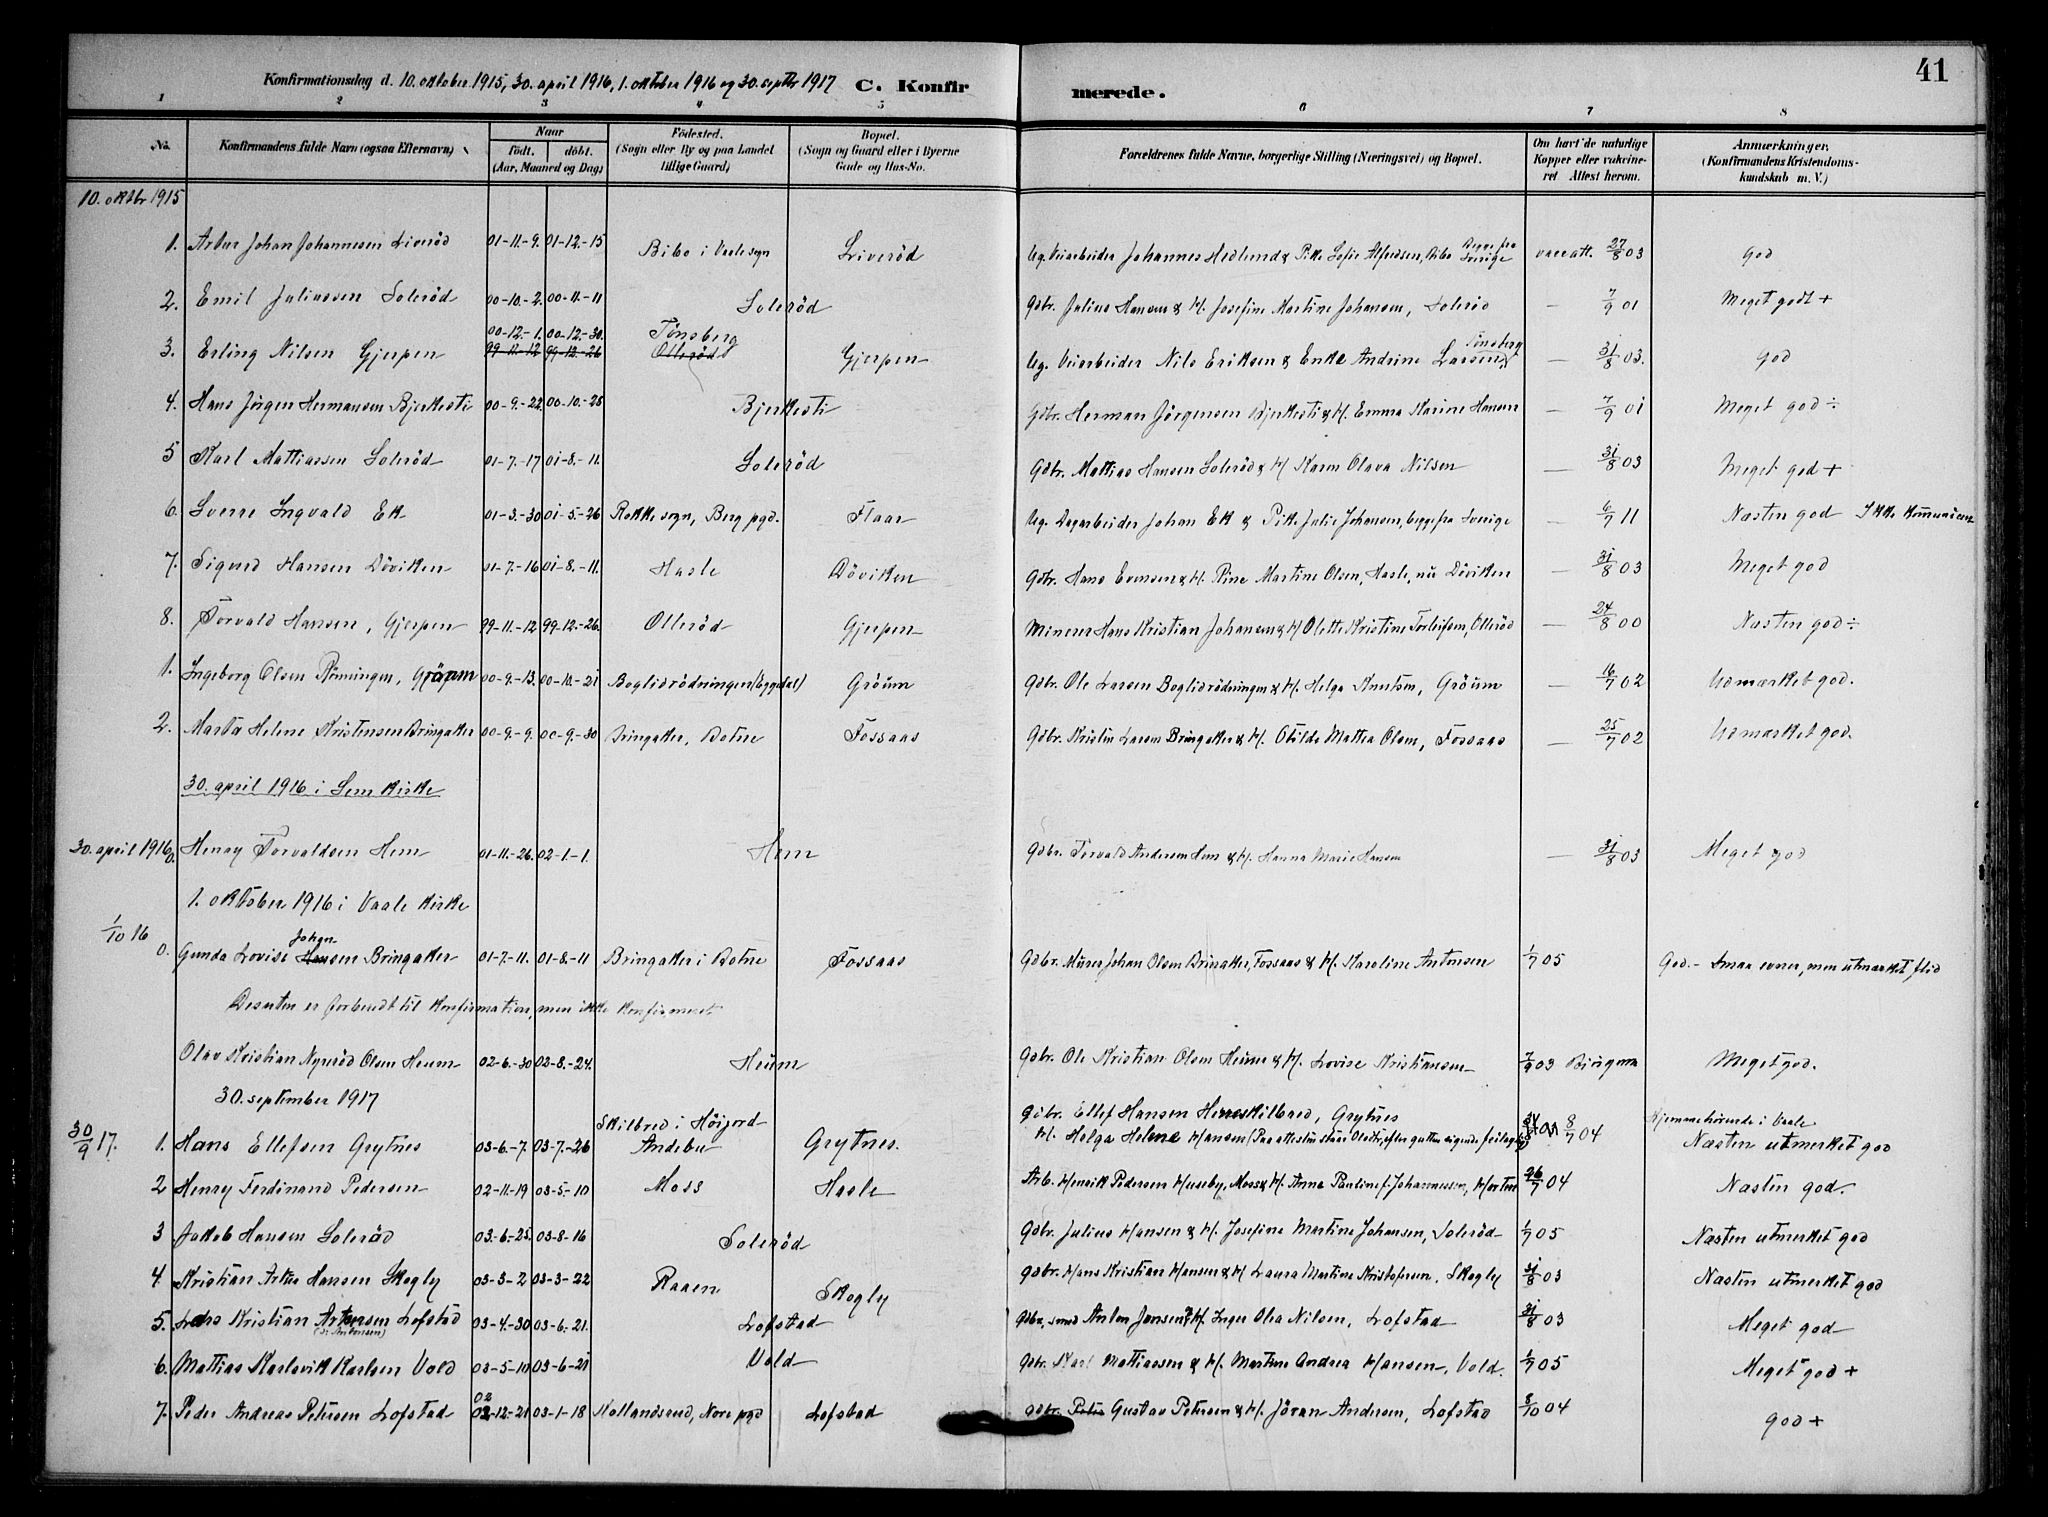 41
Konfirmationsdag d. 10. oktober 1915, 30. april 1916, 1. oktober 1916 og 30. septbr 1917 C. Konfir merede.
1 2 3 4 5 6 7 8
No.
Konfirmandens fulde Navn (ogsaa Efternavn)
Naar
født. døbt.
(Aar, Maaned og Dag)
Fødested.
(Sogn eller By og paa Landet
tillige Gaard)
Bopæl.
(Sogn og Gaard eller i Byerne
Gade og Hus-No.
Forældrenes fulde Navne, borgerlige Stilling (Næringsvei) og Bopæl.
Om havt de naturlige
Kopper eller vakcine-
ret Attest herom.
Anmærkninger,
(Konfirmandens Kristendoms-
kundskab m. V.)
10. oktbr 1915
1. Artur Johan Johannesen Liveröd 01-11-9. 01-12-15 Bibo i Vaale sogn Liveröd Ug. Veiarbeider Johannes Hedlund & Pike Sofie Alfredsen, Bibo Begge fra Sverige vacc att. 27/8 03 God
2. Emil Juliussen Soleröd 00-10-2. 00-11-11 Soleröd Gdbr. Julius Hansen & H. Josefine Martine Johansen, Soleröd — 7/9 01 Meget godt +
00-12-1. 00-12-30. Tönsberg
3. Erling Nilsen Gjerpen 99-11-12 99-12-26 Olleröd Gjerpen Ug. Veiarbeider Nils Eriksen & Enke Andrine Larsen, Tönsberg — 31/8 03. God
4. Hans Jörgen Hermansen Bjerkesti 00-9-22. 00-10-28 Bjerkesti Gdbr. Herman Jörgensen Bjerkesti & H. Emma Karine Hansen — 7/9 01 Meget god ÷
5 Karl Mattiassen Soleröd 01-7-17 01-8-11. Soleröd Gdbr. Mattias Hansen Soleröd & H. Karen Olava Nilsen — 31/8 03 Meget god +
6. Sverre Ingvald Ek 01-3-30 01-5-26 Rokke sogn, Berg pgd. Flaar Ug. Dagarbeider Johan Ek & Pike Julie Johansen, begge fra Sverige — 6/7 11 Næsten god Ikke
7. Sigurd Hansen Döviken 01-7-16 01-8-11. Hasle Döviken Gdbr. Hans Evensen & H. Rine Martine Olsen, Hasle, nu Döviken — 31/8 03 Meget god
8. Torvald Hansen, Gjerpen 99-11-12 99-12-26. Olleröd Gjerpen Minerer Hans Kristian Johansen & H. Olette Kristine Torleifsen, Olleröd — 24/8 00 Næsten god ÷
1. Ingeborg Olsen Rönningen, 00-9-13. 00-10-21 Gröum Gdbr. Ole Larsen Boglidrödningen & H. Helga Knutsen, Gröum — 16/7 02 Udmærket god.
2. Marta Helene Kristensen Bringaker 00-9-9. 00-9-30 Bringaker, Botne Fossaas Gdbr. Kristin Larsen Bringaker & H. Otilde Mattea Olsen, Fossaas — 25/7 02 Udmærket god.
30. april 1916 i Sem kirke
30. april 1916 0. Henry Torvaldsen Hem 01-11-26. 02-1-1. Hem Gdbr. Torvald Andersen Hem & H. Hanna Marie Hansen — 31/8 03 Meget god
1. oktober 1916 i Vaale kirke
1/10 16 0. Gunda Lovise Johansen Bringaker 01-7-11. 01-8-11 Bringaker i Botne Fossaas Gdbr. Murer Johan Olsen Bringaker, Fossaas & H. Karoline Antonsen 1/7 05 God. - Smaa evner, men utmerket flid
Desuten er forberedt til konfirmation, men ikke konfirmeret
Olav Kristian Nyeröd Olsen Heum 02-6-30 02-8-24. Heum Gdbr. Ole Kristian Olsen Heum & H. Lovise Kristiansen 7/9 03 Meget god.
30. september 1917
30/9 17. 1. Hans Ellefsen Grytnes 03-6-7. 03-7-26 Skilbred i Höijord Andebu Grytnes. Gdbr. Ellef Hansen, Grytnes
H. Helga Helene Hansen 8/7 04 Hjemmehörende i Vaale
Næsten utmerket god
2 Henry Ferdinand Pedersen 02-11-19 03-5-10 Moss Hasle Arb. Henrik Pedersen Huseby, Moss & H. Anna Pauline f. Johannessen, Horten 26/7 04 Næsten god.
3 Jakob Hansen Soleröd 03-6-25. 03-8-16 Soleröd Gdbr. Julius Hansen & H. Josefine Martine Johansen, Soleröd 1/7 05 Næsten utmerket god
4. Kristian Artur Hansen Skogly 03-3-2 03-3-22 Raaen Skogly Gdbr. Hans Kristian Hansen & H. Laura Martine Kristofersen, Skogly 31/8 03 Næsten utmerket god
5. Lars Kristian Antonsen Lofstad 03-4-30 03-6-21. Lofstad Gdbr., smed Anton Jensen & H. Inger Olea Nilsen, Lofstad 31/8 03 Meget god
6. Mattias Karlsvik Karlsen Vold 03-5-10 03-6-21 Vold Gdbr. Karl Mattiassen & H. Martine Andrea Hansen, Vold. 1/7 05 Meget god +
7. Peder Andreas Petersen Lofstad 02-12-21 03-1-18 Hollandsrud, Nore pgd Lofstad Gdbr. Peter Gustav Petersen & H. Jöran Andersen, Lofstad 8/10 04 God +